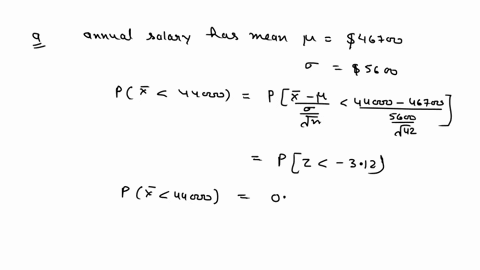 a annual salary has mean μ = $46700
σ = $5600
P(x̄ < 44000) = P[x̄-μ / σ/√n < 44000-46700 / 5600/√42]
= P[Z < -3.12)
P(x̄ < 44000) = 0.